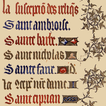 la suscepcion des reliqs
Saint ambroise.
Sainte barbe.
Saint nicolas
Sainte fare.
la concepcion nre dame
Saint cyprian